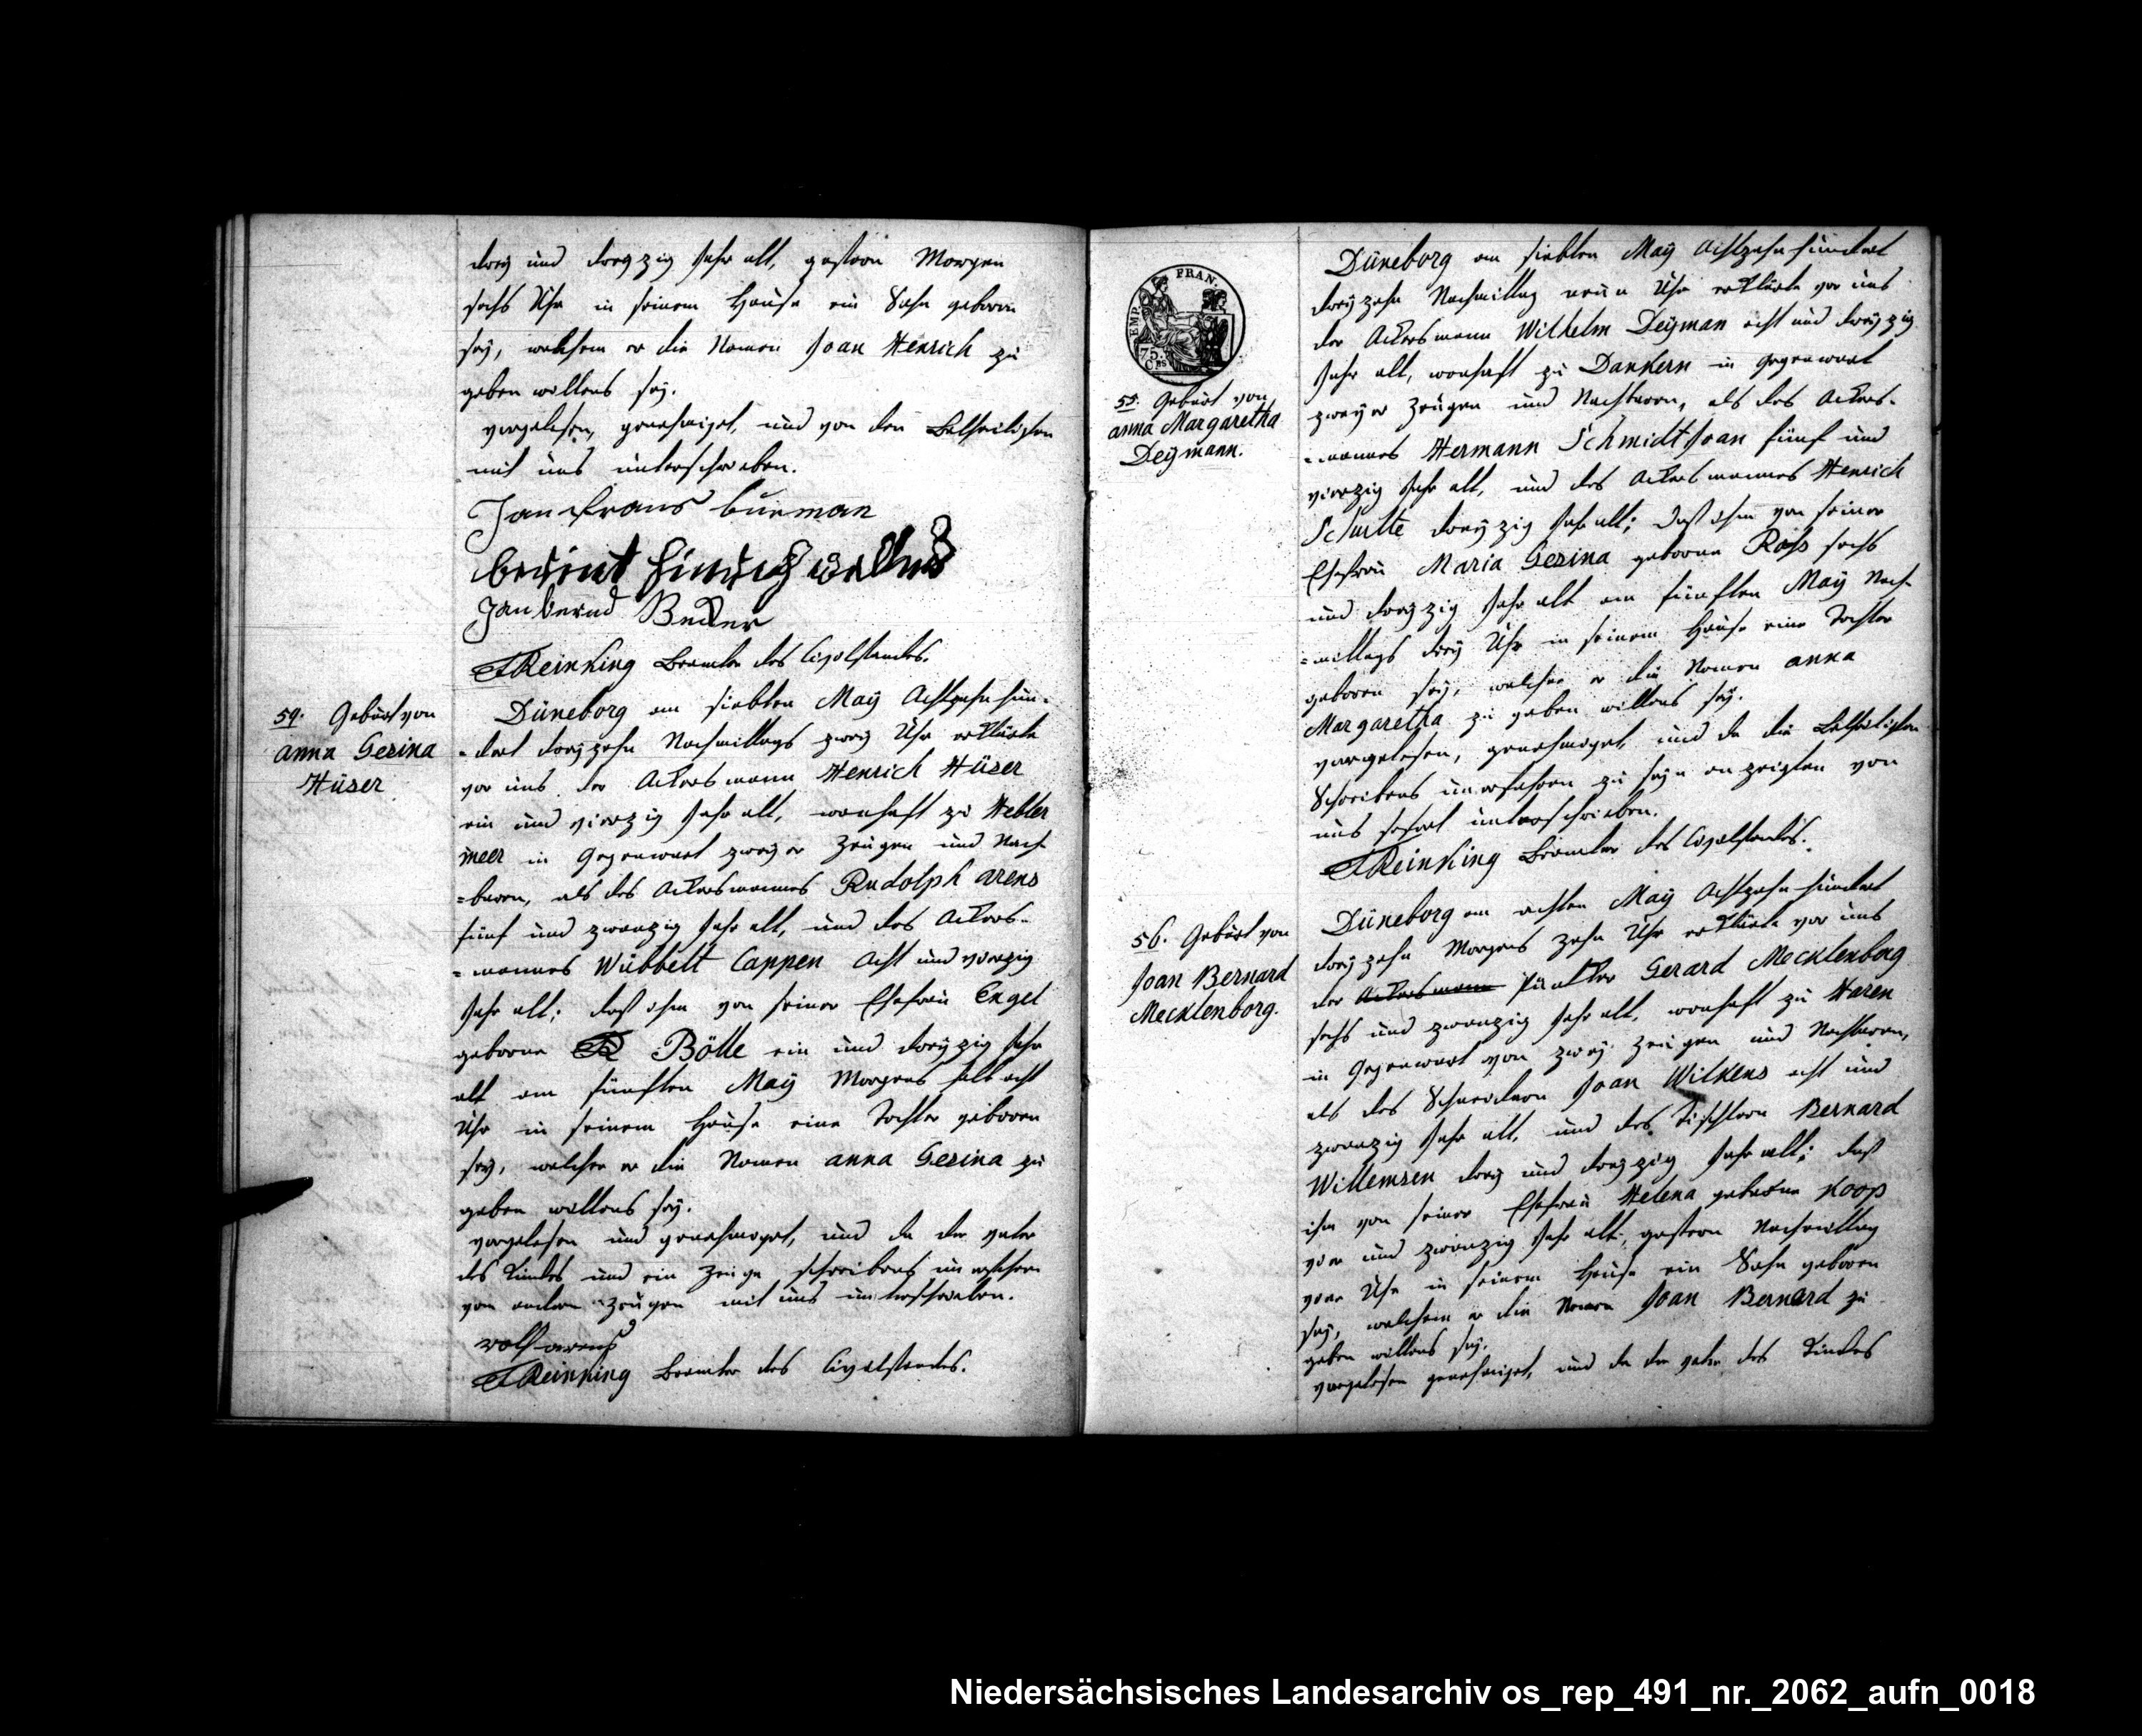 drey und dreyzig Jahr alt, gestern Morgen
sechs Uhr in seinem Hause ein Sohn geboren
sey, welchem er die Namen Joan Henrich zu
geben willens sey.
vorgelesen, genehmiget, und von den Betheiligten
mit uns unterschrieben.
Jan frans burman
berent hinrich
Jan bernd Becker
Reinking Beamter des Civilstandes.
59. Geburt von
anna Gesina
Hüser
Düneborg am siebten May Achtzehnhun-
-dert dreyzehn Nachmittags zwey Uhr erklärte
vor uns der Ackersmann Henrich Hüser
ein und vierzig Jahr alt, wonhaft zu Hebler
meer in Gegenwart zweyer Zeugen und Nach-
=baren, als des Ackersmannes Rudolph arens
fünf und zwanzig Jahr alt, und des Ackers-
=mannes Wübbelt Cappen Acht und vierzig
Jahr alt; daß ihm von seiner Ehefrau Engel
geborne Bölle ein und dreyzig Jahr
alt am fünften May Morgens halb acht
Uhr in seinem Hause eine Tochter geboren
sey, welcher er die Namen anna Gesina zu
geben willens sey.
vorgelesen und genehmiget, und da der vater
des Kindes und ein Zeuge schreibens unerfahren
von andern Zeugen mit uns unterschrieben.
rolf arens
Reinking Beamter des Civilstandes.
EMP. FRAN.
75. Ces
55. Geburt von
anna Margaretha
Deymann.
Düneborg am siebten May Achtzehnhundert
dreyzehn Nachmittag neun Uhr erklärte vor uns
der Ackersmann Wilhelm Deyman acht und dreyzig
Jahr alt, wonhaft zu Dankern in Gegenwart
zweyer Zeugen und Nachbaren, als des Ackers-
=mannes Hermann Schmidt Joan fünf und
vierzig Jahr alt, und des Ackersmannes Henrich
Schulte dreyzig Jahr alt; daß ihm von seiner
Ehefrau Maria Gesina geborne Rohs sechs
und dreyzig Jahr alt am fünften May Nach-
=mittags drey Uhr in seinem Hause eine Tochter
geboren sey, welcher er die Namen anna
Margaretha zu geben willens sey.
vorgelesen, genehmiget, und da die Betheiligten
Schreibens unerfahren zu seyn anzeigten von
uns sofort unterschrieben.
Reinking Beamter des Civilstandes.
56. Geburt von
Joan Bernard
Mecklenborg.
Düneborg am achten May Achtzehnhundert
dreyzehn Morgens zehn Uhr erklärte vor uns
der Ackersmann Gerard Mecklenborg
sechs und zwanzig Jahr alt, wonhaft zu Haren
in Gegenwart von zwey Zeugen und Nachbaren,
als des Schneidern Joan Wilkens acht und
zwanzig Jahr alt, und des Tischlern Bernard
Willemsen drey und dreyzig Jahr alt; daß
ihm von seiner Ehefrau Helena geborne Koop
vier und zwanzig Jahr alt, gestern Nachmittag
vier Uhr in seinem Hause ein Sohn geboren
sey, welchem er die Namen Joan Bernard zu
geben willens sey.
vorgelesen genehmiget, und da der vater des Kindes
Niedersächsisches Landesarchiv os_rep_491_nr._2062_aufn_0018